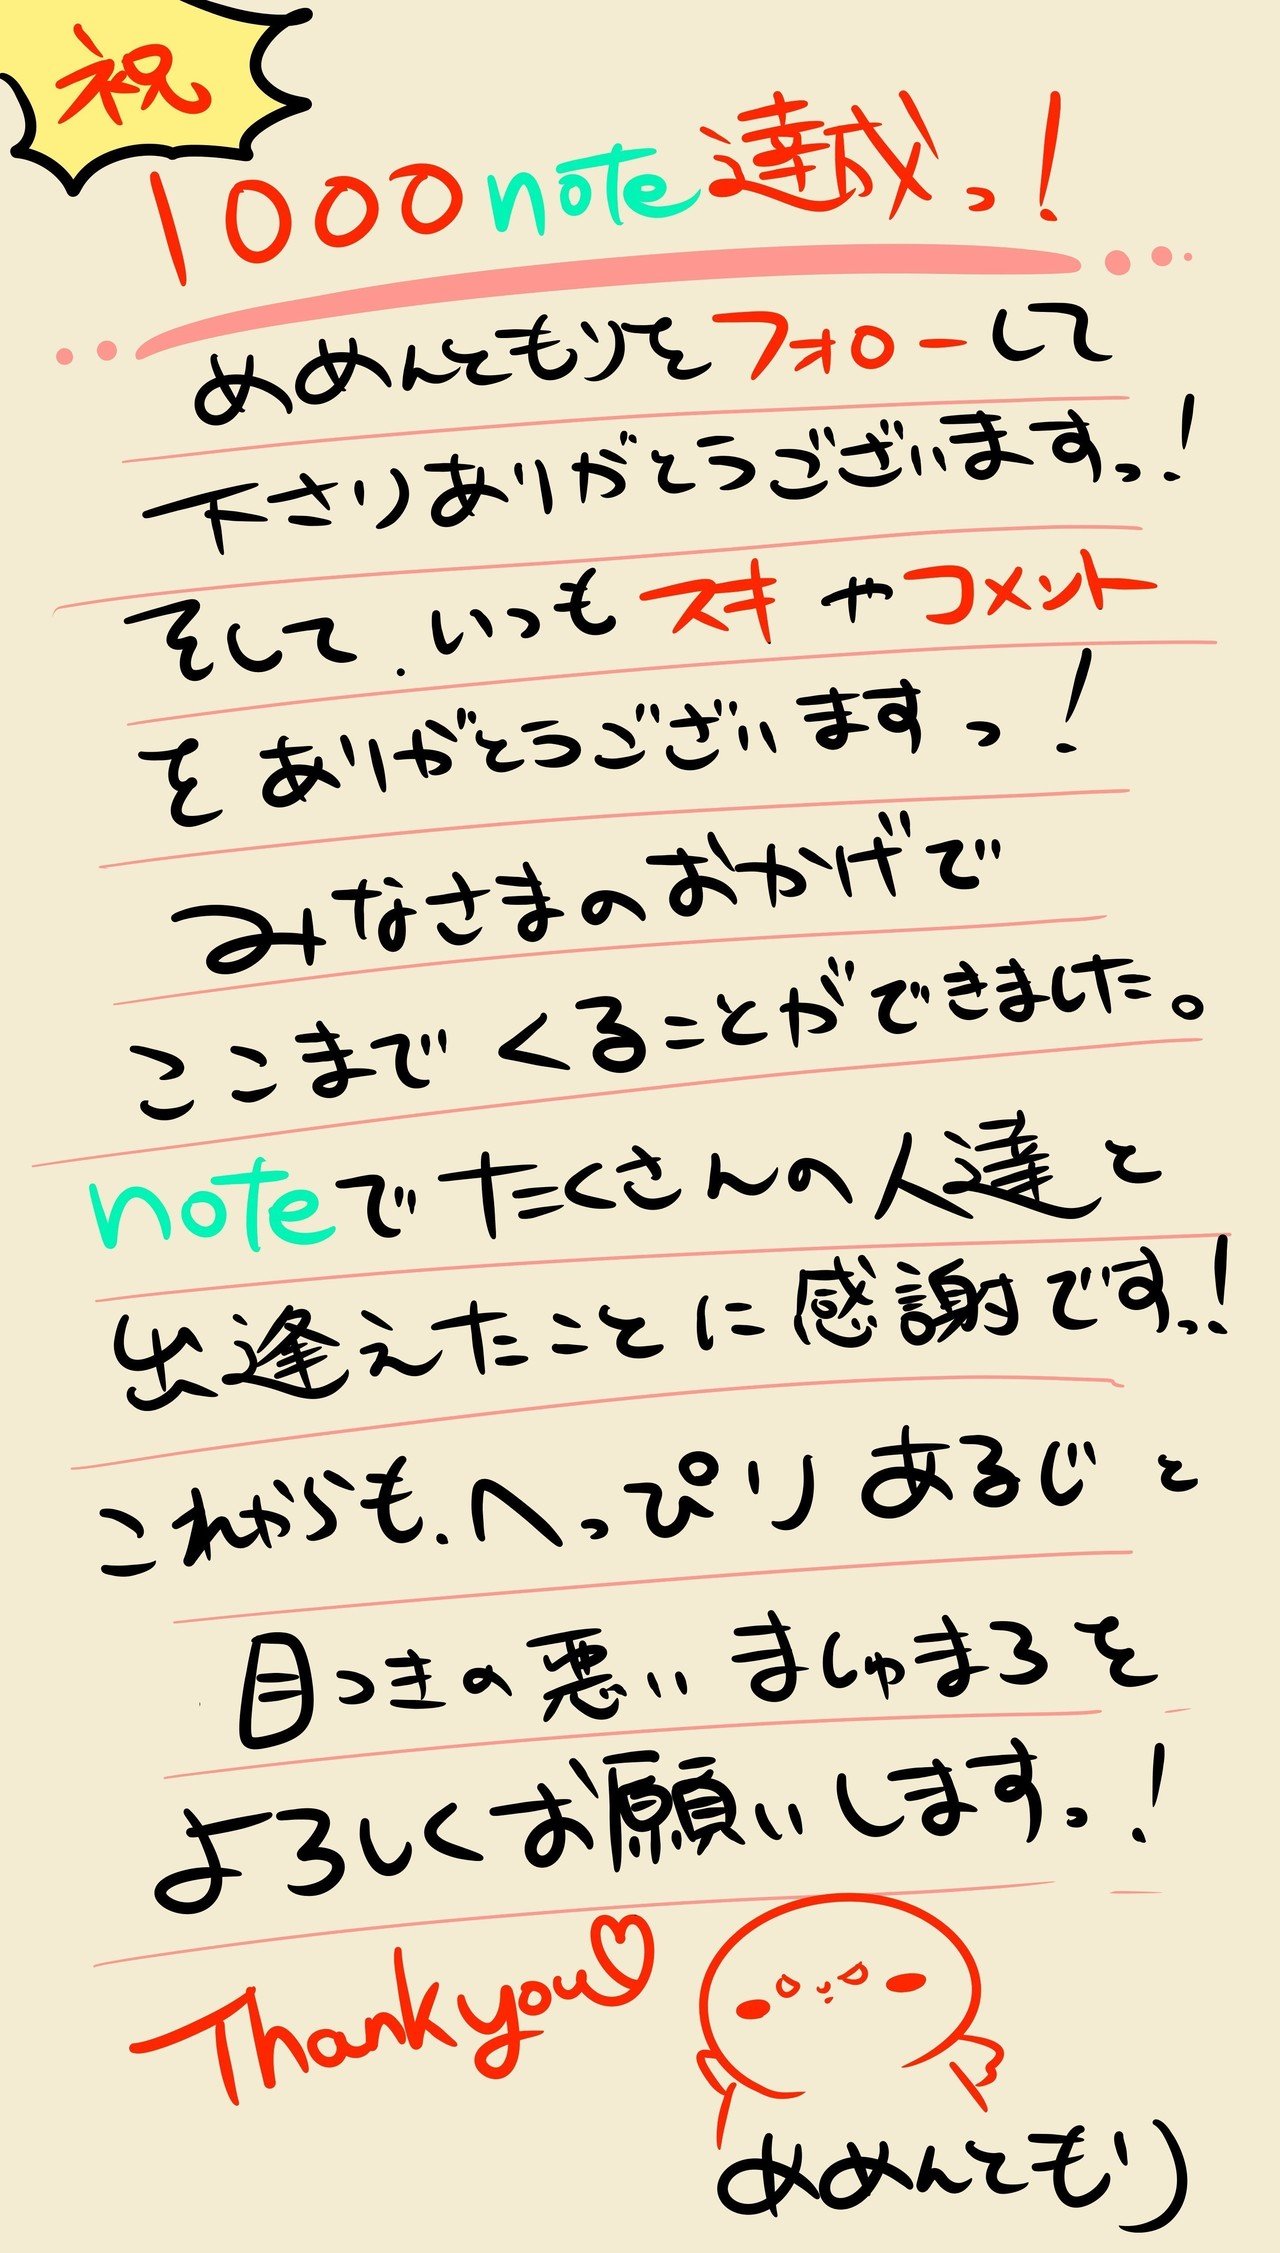 祝
1000note達成っ!
めめんともりをフォローして
下さりありがとうございますっ!
そして、いつもスキやコメント
をありがとうございますっ!
みなさまのおかげで
ここまでくることができました。
noteでたくさんの人達と
出逢えたことに感謝ですっ!
これからも、へっぴりあるじと
目つきの悪いましゅまろを
よろしくお願いしますっ!
Thank you♡
めめんともり